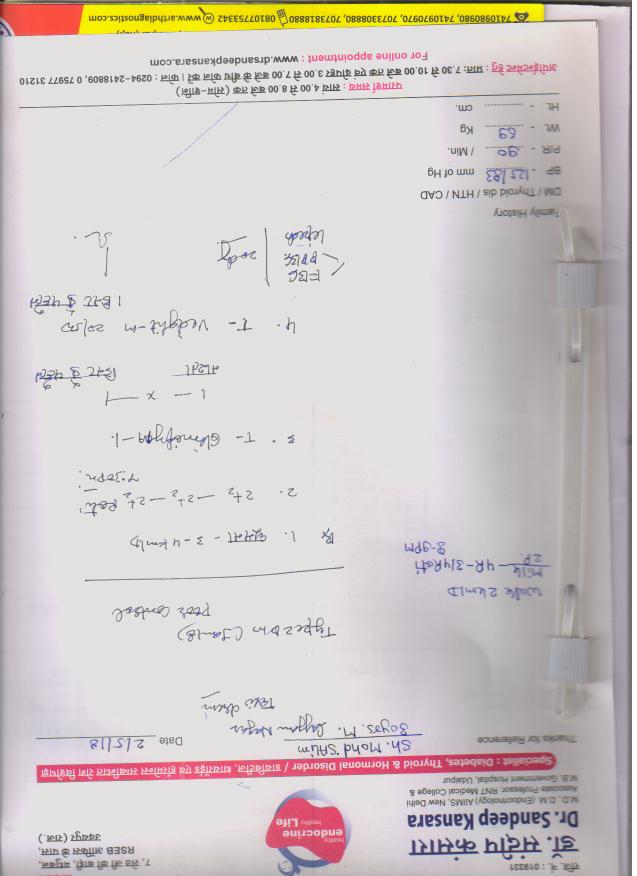 रजि. नं. : 019331
डॉ. संदीप कंसारा
Dr. Sandeep Kansara
M.D., D.M. (Endocrinology) AIIMS, New Delhi
Associate Professor, RNT Medical College &
M.B. Government Hospital, Udaipur
healthy
endocrine
healthy
Life
7, सेठ जी की बाड़ी, मधुबन,
RSEB ऑफिस के पास,
उदयपुर (राज.)
Specialist : Diabetes, Thyroid & Hormonal Disorder / डायबिटीज, थायरॉईड एवं हॉर्मोन्स सम्बंधित रोग विशेषज्ञ
Thanks for Reference
Sh. Mohd Salim
Date 2/5/18
30yrs. M.
Type 2 DM
poor control
Walk 2 km/D
Milk - 4R - 3/4 Roti
2P.
8-9PM
Rx 1. घूमना - 3-4 km/D
2. 2+2 — 2+2 — 2+2 Roti
7:30pm.
3. T- Glimefyn -1.
1 — x — 1
4. T- Voglit-m
FBG
PPBG
Lipid
20 day
Family History
DM / Thyroid dis / HTN / CAD
B/P - 125/83 mm of Hg
P/R - 90 / Min.
Wt. - 69 Kg
Ht. - cm.
परामर्श समय : सायं 4.00 से 8.00 बजे तक (सोम-शनि)
अपॉईन्टमेन्ट हेतु : प्रातः 7.30 से 10.00 बजे तक एवं दोपहर 3.00 से 7.00 बजे के बीच फोन करें। फोन : 0294-2418809, 0 75977 31210
For online appointment : www.drsandeepkansara.com
7410980980, 7410970970, 7073308880, 7073818880 08107753342 www.arthdiagnostics.com